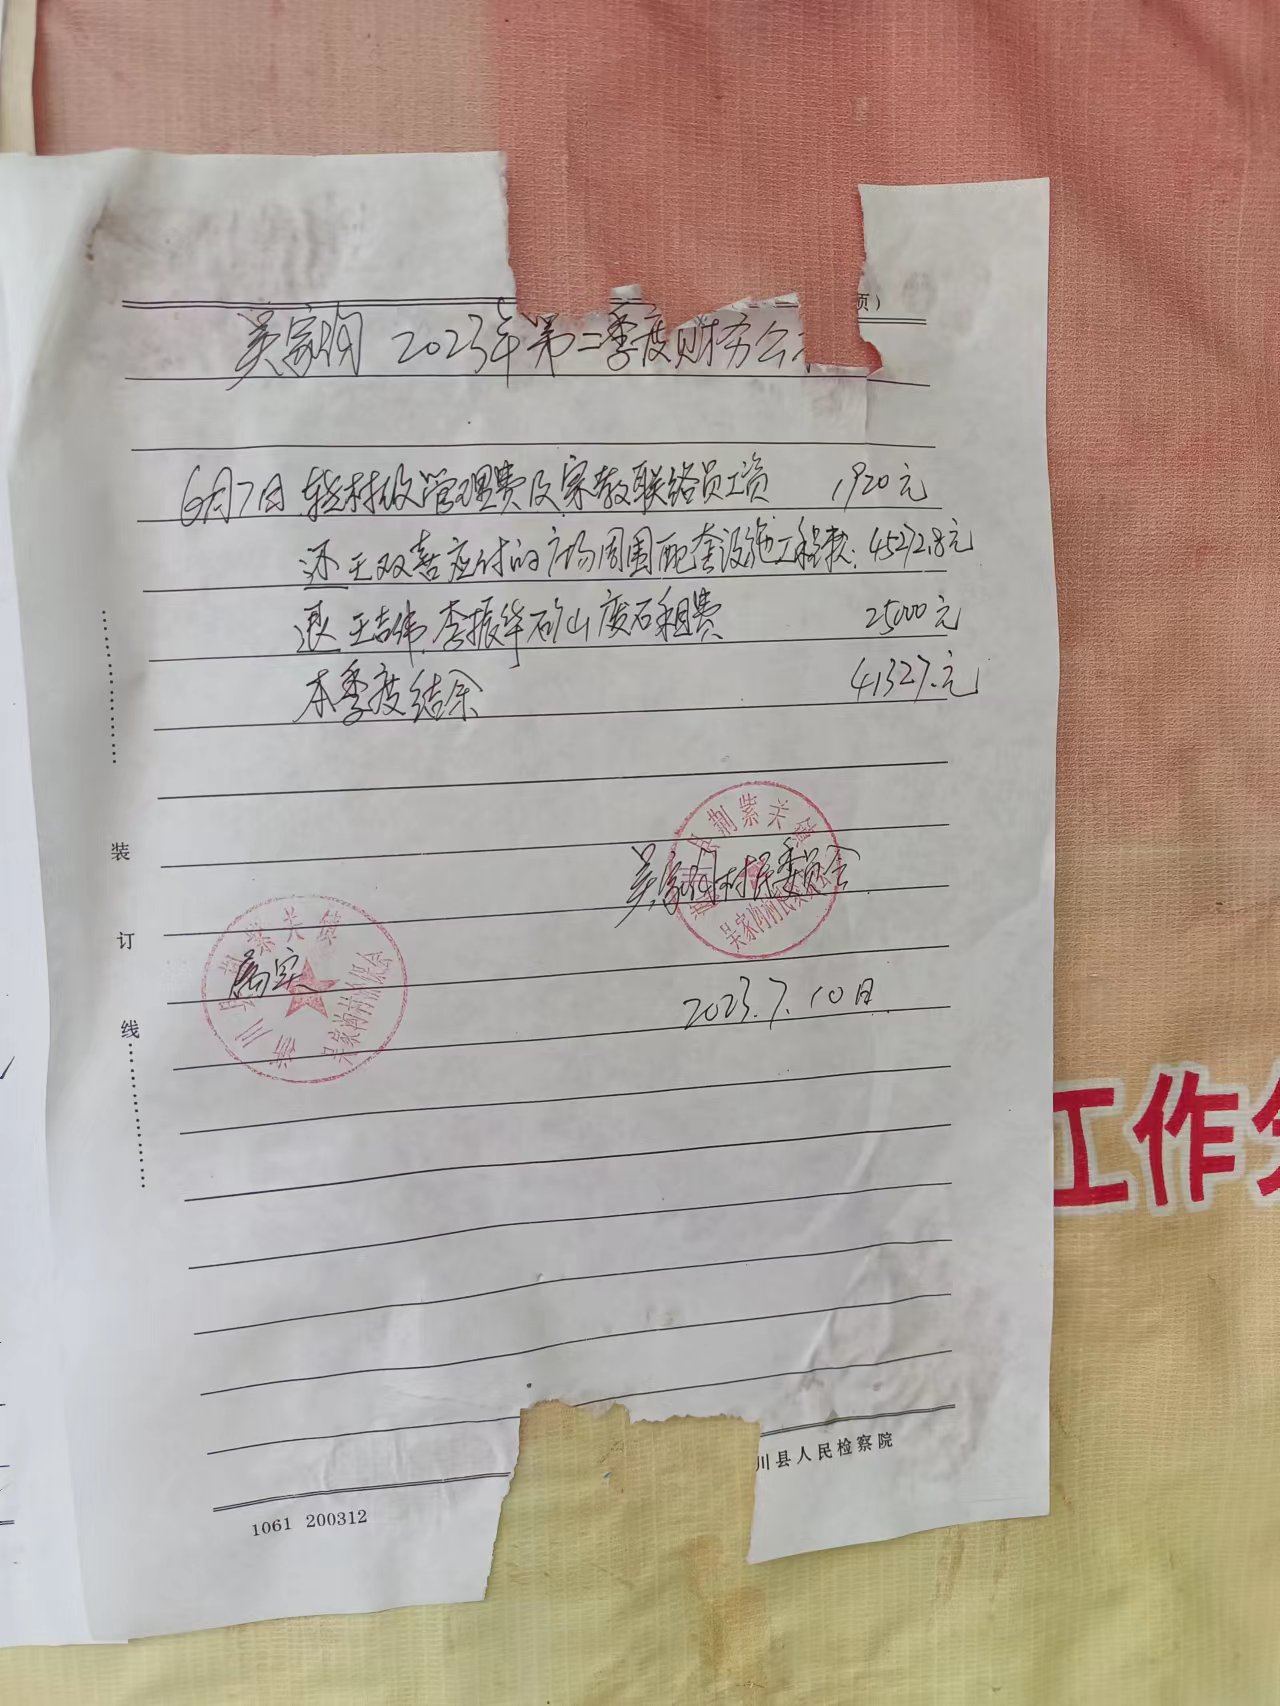 页)
吴家沟 2023年第二季度财务公
6月7日 转村级管理费及宗教联络员工资 1920元
还王双喜应付的广场周围配套设施工程款: 45272.8元
退王吉伟.李振华矿山废石租费 25000元
本季度结余 41327.元
荆紫关镇
吴家沟村民委员会
吴家沟村民委员会
紫关镇
属实
淅川县
吴家沟村
2023.7.10日
装
订
线
工作
川县人民检察院
1061 200312